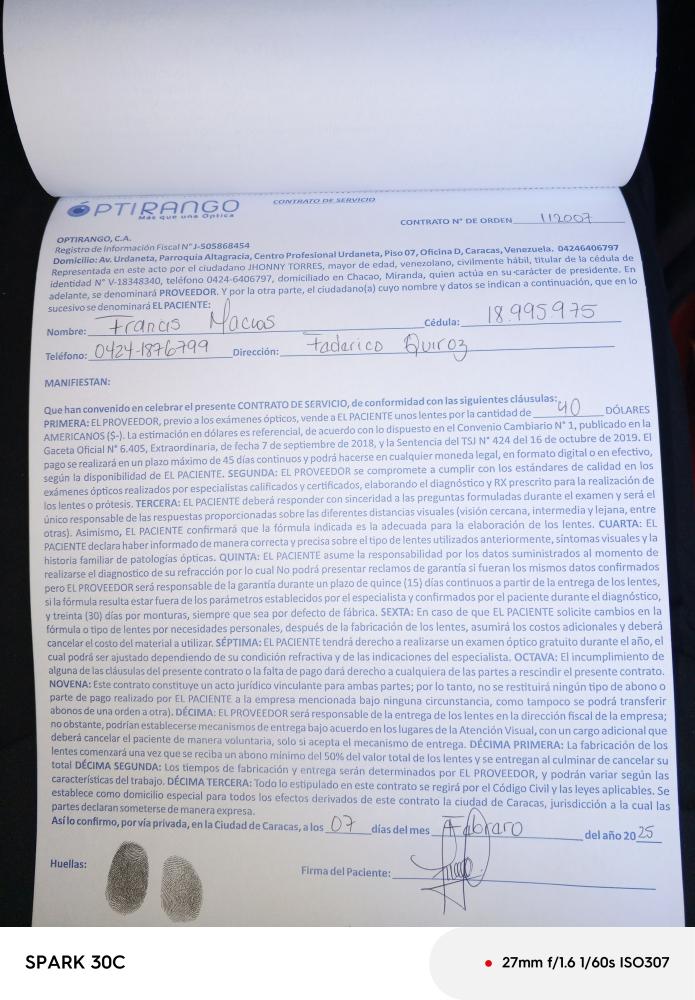 ÓPTIRANGO
Más que una Óptica
CONTRATO DE SERVICIO
CONTRATO N° DE ORDEN 112007
OPTIRANGO, C.A.
Registro de Información Fiscal N° J-505868454
Domicilio: Av. Urdaneta, Parroquia Altagracia, Centro Profesional Urdaneta, Piso 07, Oficina D, Caracas, Venezuela. 04246406797
Representada en este acto por el ciudadano JHONNY TORRES, mayor de edad, venezolano, civilmente hábil, titular de la cédula de
identidad N° V-18348340, teléfono 0424-6406797, domiciliado en Chacao, Miranda, quien actúa en su carácter de presidente. En
adelante, se denominará PROVEEDOR. Y por la otra parte, el ciudadano(a) cuyo nombre y datos se indican a continuación, que en lo
sucesivo se denominará EL PACIENTE:
Nombre: Francis Macias Cédula: 18.995.975
Teléfono: 0424-1876799 Dirección: Federico Quiroz
MANIFIESTAN:
Que han convenido en celebrar el presente CONTRATO DE SERVICIO, de conformidad con las siguientes cláusulas:
PRIMERA: EL PROVEEDOR, previo a los exámenes ópticos, vende a EL PACIENTE unos lentes por la cantidad de 40 DÓLARES
AMERICANOS ($-). La estimación en dólares es referencial, de acuerdo con lo dispuesto en el Convenio Cambiario N° 1, publicado en la
Gaceta Oficial N° 6.405, Extraordinaria, de fecha 7 de septiembre de 2018, y la Sentencia del TSJ N° 424 del 16 de octubre de 2019. El
pago se realizará en un plazo máximo de 45 días continuos y podrá hacerse en cualquier moneda legal, en formato digital o en efectivo,
según la disponibilidad de EL PACIENTE. SEGUNDA: EL PROVEEDOR se compromete a cumplir con los estándares de calidad en los
exámenes ópticos realizados por especialistas calificados y certificados, elaborando el diagnóstico y RX prescrito para la realización de
los lentes o prótesis. TERCERA: EL PACIENTE deberá responder con sinceridad a las preguntas formuladas durante el examen y será el
único responsable de las respuestas proporcionadas sobre las diferentes distancias visuales (visión cercana, intermedia y lejana, entre
otras). Asimismo, EL PACIENTE confirmará que la fórmula indicada es la adecuada para la elaboración de los lentes. CUARTA: EL
PACIENTE declara haber informado de manera correcta y precisa sobre el tipo de lentes utilizados anteriormente, síntomas visuales y la
historia familiar de patologías ópticas. QUINTA: EL PACIENTE asume la responsabilidad por los datos suministrados al momento de
realizarse el diagnostico de su refracción por lo cual No podrá presentar reclamos de garantía si fueran los mismos datos confirmados
pero EL PROVEEDOR será responsable de la garantía durante un plazo de quince (15) días continuos a partir de la entrega de los lentes,
si la fórmula resulta estar fuera de los parámetros establecidos por el especialista y confirmados por el paciente durante el diagnóstico,
y treinta (30) días por monturas, siempre que sea por defecto de fábrica. SEXTA: En caso de que EL PACIENTE solicite cambios en la
fórmula o tipo de lentes por necesidades personales, después de la fabricación de los lentes, asumirá los costos adicionales y deberá
cancelar el costo del material a utilizar. SÉPTIMA: EL PACIENTE tendrá derecho a realizarse un examen óptico gratuito durante el año, el
cual podrá ser ajustado dependiendo de su condición refractiva y de las indicaciones del especialista. OCTAVA: El incumplimiento de
alguna de las cláusulas del presente contrato o la falta de pago dará derecho a cualquiera de las partes a rescindir el presente contrato.
NOVENA: Este contrato constituye un acto jurídico vinculante para ambas partes; por lo tanto, no se restituirá ningún tipo de abono o
parte de pago realizado por EL PACIENTE a la empresa mencionada bajo ninguna circunstancia, como tampoco se podrá transferir
abonos de una orden a otra). DÉCIMA: EL PROVEEDOR será responsable de la entrega de los lentes en la dirección fiscal de la empresa;
no obstante, podrían establecerse mecanismos de entrega bajo acuerdo en los lugares de la Atención Visual, con un cargo adicional que
deberá cancelar el paciente de manera voluntaria, solo si acepta el mecanismo de entrega. DÉCIMA PRIMERA: La fabricación de los
lentes comenzará una vez que se reciba un abono mínimo del 50% del valor total de los lentes y se entregan al culminar de cancelar su
total DÉCIMA SEGUNDA: Los tiempos de fabricación y entrega serán determinados por EL PROVEEDOR, y podrán variar según las
características del trabajo. DÉCIMA TERCERA: Todo lo estipulado en este contrato se regirá por el Código Civil y las leyes aplicables. Se
establece como domicilio especial para todos los efectos derivados de este contrato la ciudad de Caracas, jurisdicción a la cual las
partes declaran someterse de manera expresa.
Así lo confirmo, por vía privada, en la Ciudad de Caracas, a los 07 días del mes Febrero del año 2025
Huellas:
Firma del Paciente:
SPARK 30C
27mm f/1.6 1/60s ISO307